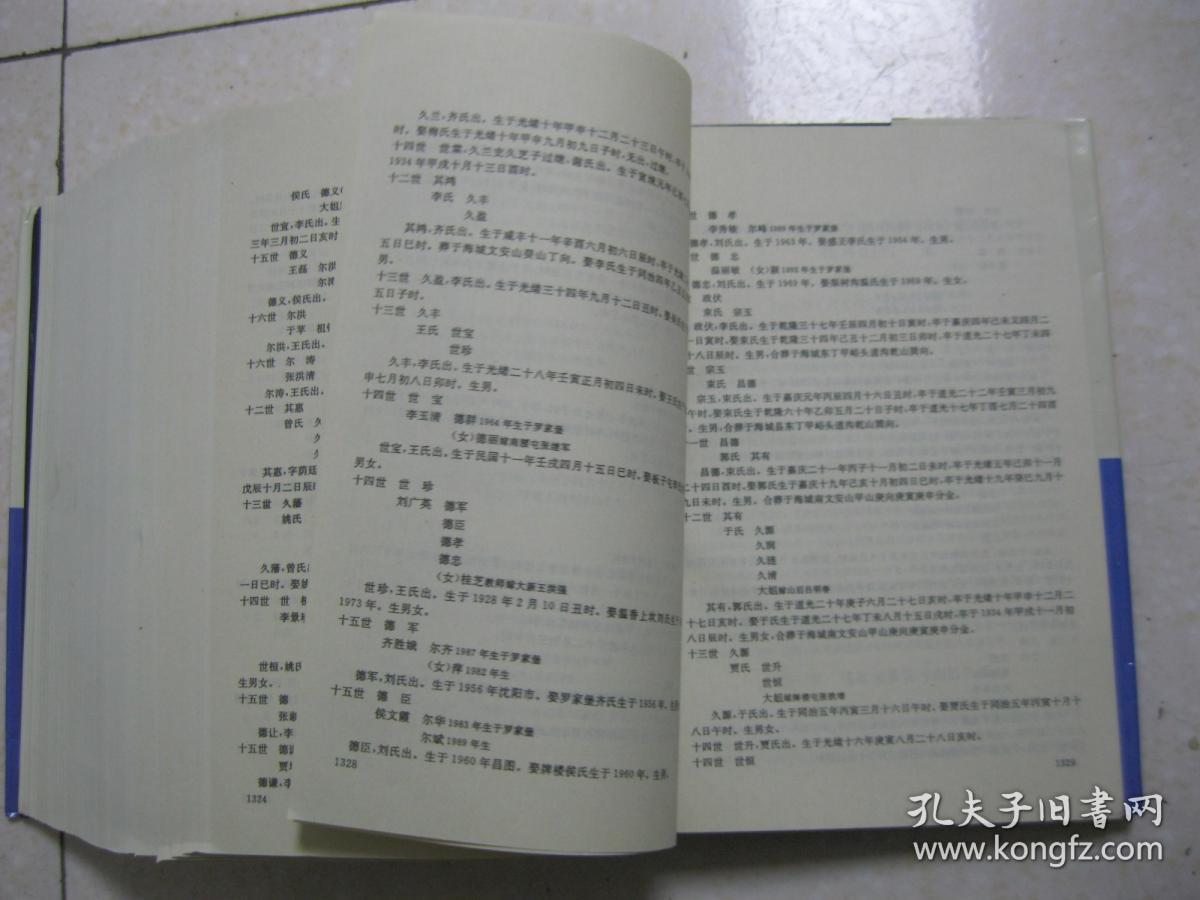 侯氏 德义
大姐
世宣,李氏出。生
三年三月初二日亥时
十五世 德义
王磊 尔洪
尔涛
德义,侯氏出。
十六世 尔洪
于苹 祖
尔洪,王氏出。
十六世 尔 涛
张洪清
尔涛,王氏出。
十二世 其惠
曾氏 久
久
其惠,字荫廷
戊辰十月二日辰
十三世 久藩
姚氏
久藩,曾氏
一日巳时。娶
十四世 世
李景
世桓,姚氏
生男女。
十五世 德
张
德让,李
十五世 德
贾
德谦,李
1324
久兰,齐氏出。生于光绪十年甲申十二月二十三日午时,卒于
时。娶梅氏生于光绪十年甲申九月初九日子时,无出,过继。
十四世 世棠,久兰支久芝子过继,谢氏出。生于宣统元年己
1934年甲戌十月十三日酉时。
十二世 其鸿
李氏 久丰
久盈
其鸿,齐氏出。生于咸丰十一年辛酉六月初六日辰时,卒于光绪
五日巳时。葬于海城文安山癸山丁向。娶李氏生于同治四年乙丑
男。
十三世 久盈,李氏出。生于光绪三十四年九月十二日丑时。娶
五日子时。
十三世 久丰
王氏 世宝
世珍
久丰,李氏出。生于光绪二十八年壬寅正月初四日未时。娶王氏
申七月初八日卯时。生男。
十四世 世 宝
李玉清 德群1964年生于罗家堡
(女)德丽嫁南腰屯张继军
世宝,王氏出。生于民国十一年壬戌四月十五日巳时。娶板子屯李
男女。
十四世 世 珍
刘广英 德军
德臣
德孝
德忠
(女)桂芝教师嫁大豪王洪强
世珍,王氏出。生于1928年2月10日丑时。娶温香上坎刘氏生于
1973年。生男女。
十五世 德 军
齐胜娥 尔齐1987年生于罗家堡
(女)萍1982年生
德军,刘氏出。生于1956年沈阳市。娶罗家堡齐氏生于1956年。生
十五世 德 臣
侯文霞 尔华1983年生于罗家堡
尔斌1989年生
德臣,刘氏出。生于1960年昌图。娶牌楼侯氏生于1960年。生男。
1328
世 德 孝
李秀敏 尔峰1989年生于罗家堡
德孝,刘氏出。生于1963年。娶盛正李氏生于1964年。生男。
世 德 忠
温丽敏 (女)颖1993年生于罗家堡
德忠,刘氏出。生于1969年。娶梨树沟温氏生于1969年。生女。
政伏
束氏 宗玉
政伏,李氏出。生于乾隆三十七年壬辰四月初十日寅时,卒于嘉庆四年己未又四月二
一日寅时。娶束氏生于乾隆三十四年己丑十二月初三日卯时,卒于道光二十七年丁未四
十八日辰时。生男,合葬于海城东丁甲峪头道沟乾山巽向。
世 宗玉
束氏 昌德
宗玉,束氏出。生于嘉庆元年丙辰四月十六日丑时,卒于道光二十二年壬寅三月初九
午时。娶束氏生于乾隆六十年乙卯五月二十日子时,卒于道光十七年丁酉七月二十四酉
。生男,合葬于海城县东丁甲峪头道沟乾山巽向。
一世 昌德
郭氏 其有
昌德,束氏出。生于嘉庆二十一年丙子十一月初二日未时,卒于光绪五年己卯十一月
二十四日酉时。娶郭氏生于嘉庆十九年甲戌十月初四日巳时,卒于光绪十九年癸巳九月十
九日未时。生男。合葬于海城南文安山甲山庚向庚寅庚申分金。
十二世 其有
于氏 久源
久润
久涟
久清
大姐嫁山后吕明春
其有,郭氏出。生于道光二十年庚子六月二十七日亥时,卒于光绪十年甲申十二月二
十七日亥时。娶于氏生于道光二十七年丁未八月十五日戌时,卒于1934年甲戌十一月初
八日辰时。生男女,合葬于海城南文安山甲山庚向庚寅庚申分金。
十三世 久源
贾氏 世升
世恒
大姐嫁牌楼屯张铁增
久源,于氏出。生于同治五年丙寅三月十六日午时。娶贾氏生于同治五年丙寅十月十
八日午时。生男女。
十四世 世升,贾氏出。生于光绪十六年庚寅八月二十八日亥时。
十四世 世恒
1329
孔夫子旧书网
www.kongfz.com